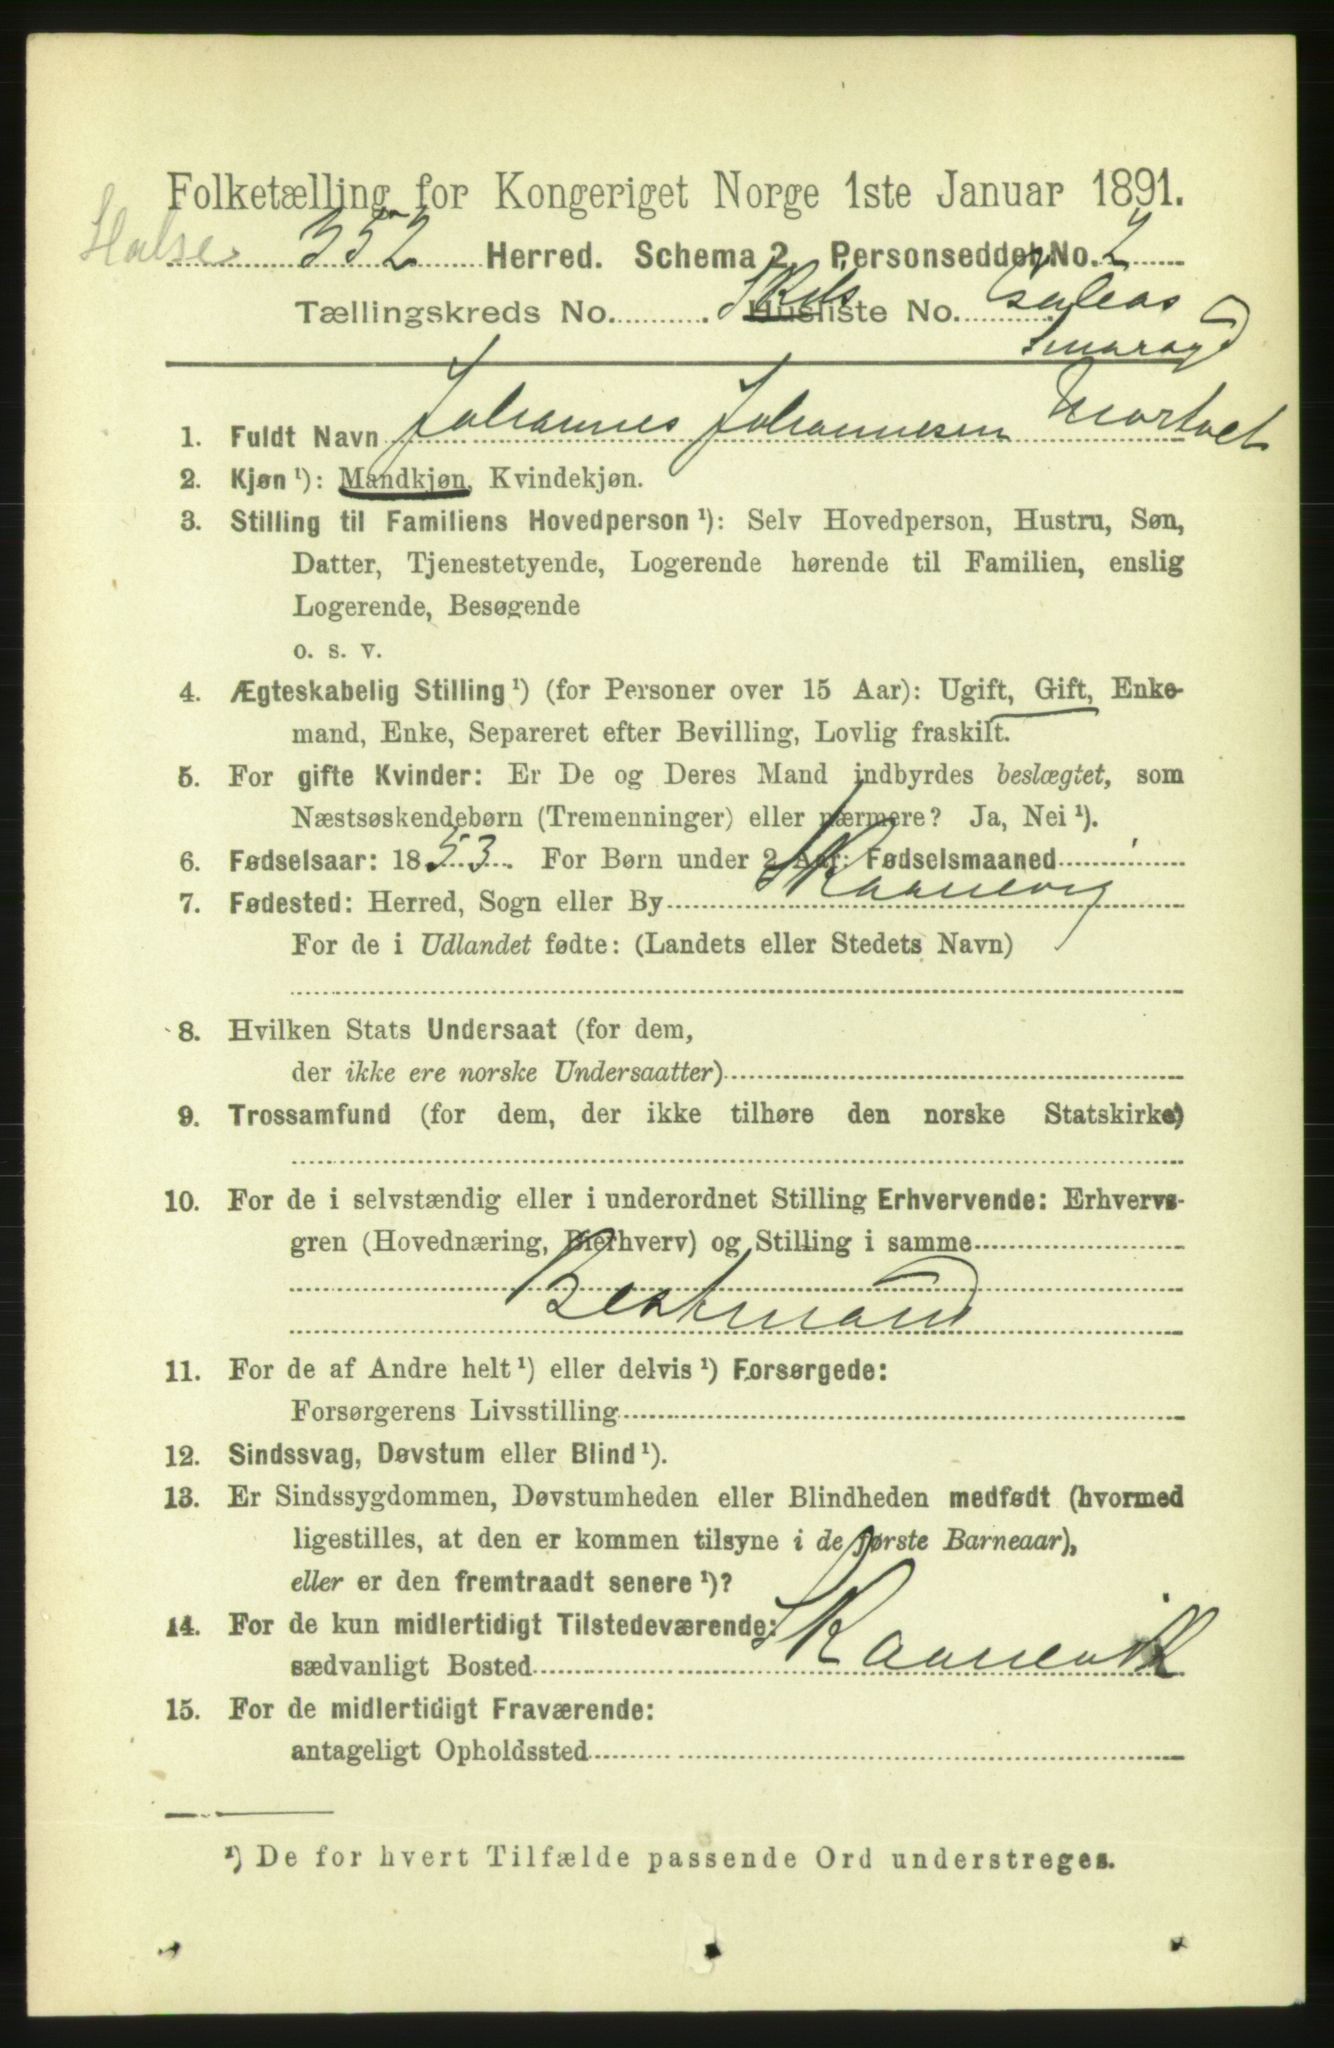 Folketælling for Kongeriget Norge 1ste Januar 1891.
Halse 352 Herred. Schema 2. Personseddel No. 2
Tællingskreds No. Skibs Husliste No. Galeas
Smaragd
1. Fuldt Navn Johannes Johannesen
2. Kjøn ¹): Mandkjøn, Kvindekjøn.
3. Stilling til Familiens Hovedperson ¹): Selv Hovedperson, Hustru, Søn,
Datter, Tjenestetyende, Logerende hørende til Familien, enslig
Logerende, Besøgende
o. s. v.
4. Ægteskabelig Stilling ¹) (for Personer over 15 Aar): Ugift, Gift, Enke-
mand, Enke, Separeret efter Bevilling, Lovlig fraskilt.
5. For gifte Kvinder: Er De og Deres Mand indbyrdes beslægtet, som
Næstsøskendebørn (Tremenninger) eller nærmere? Ja, Nei ¹).
6. Fødselsaar: 1853. For Børn under 2 Aar: Fødselsmaaned
7. Fødested: Herred, Sogn eller By Skaanevig
For de i Udlandet fødte: (Landets eller Stedets Navn)
8. Hvilken Stats Undersaat (for dem,
der ikke ere norske Undersaatter)
9. Trossamfund (for dem, der ikke tilhøre den norske Statskirke)
10. For de i selvstændig eller i underordnet Stilling Erhvervende: Erhvervs-
gren (Hovednæring, Bierhverv) og Stilling i samme
Bestmand
11. For de af Andre helt ¹) eller delvis ¹) Forsørgede:
Forsørgerens Livsstilling
12. Sindssvag, Døvstum eller Blind ¹).
13. Er Sindssygdommen, Døvstumheden eller Blindheden medfødt (hvormed
ligestilles, at den er kommen tilsyne i de første Barneaar),
eller er den fremtraadt senere ¹)?
14. For de kun midlertidigt Tilstedeværende:
sædvanligt Bosted Skaanevik
15. For de midlertidigt Fraværende:
antageligt Opholdssted
¹) De for hvert Tilfælde passende Ord understreges.